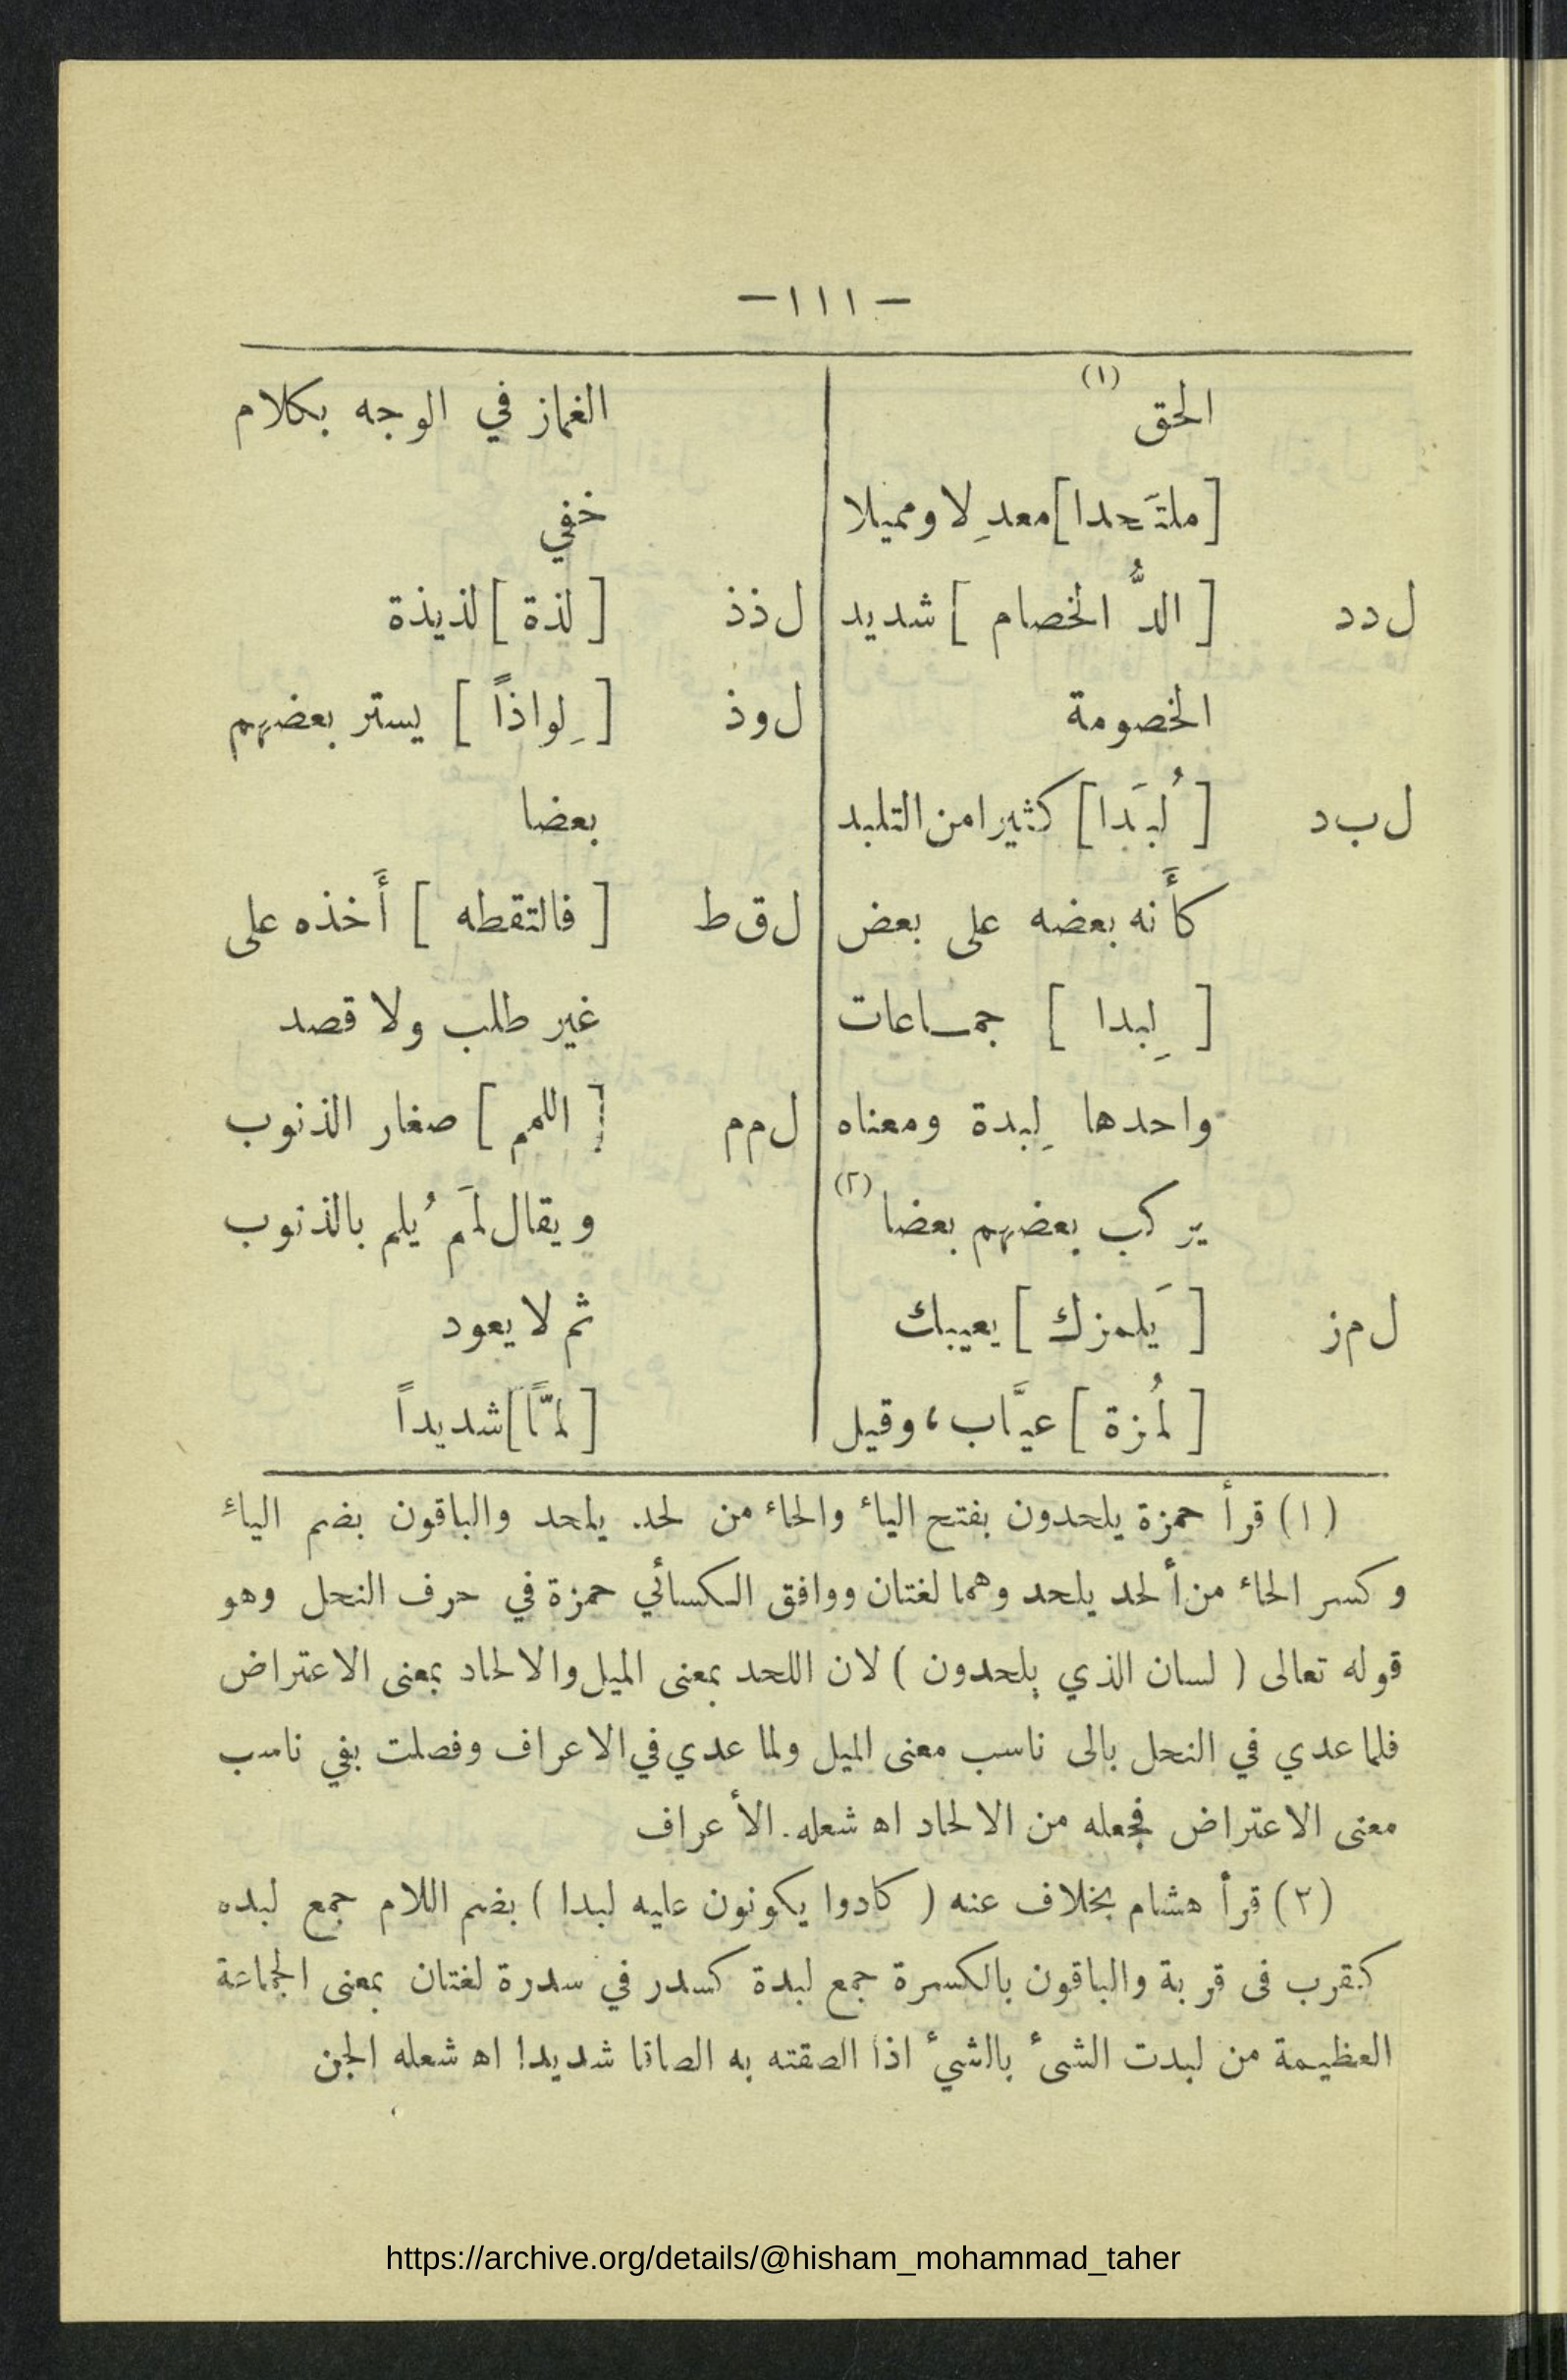 — ١١١ —
الحق (١)
[ملتَحدا] معدِلا ومميلا
ل د د [الدُّ الخصام] شديد
الخصومة
ل ب د [لُبَدا] كثيرا من التلبد
كأَنه بعضه على بعض
[لِبدا] جمـاعات
واحدها لِبدة ومعناه
يركب بعضهم بعضا (٢)
ل م ز [يَلمزك] يعيبك
[لُمزة] عيَّاب، وقيل
الغماز في الوجه بكلام
خفي
ل ذ ذ [لذة] لذيذة
ل و ذ [لِواذاً] يستتر بعضهم
بعضا
ل ق ط [فالتقطه] أَخذه على
غير طلب ولا قصد
ل م م [اللمم] صغار الذنوب
ويقال لمَم يُلم بالذنوب
ثم لا يعود
[لمًّا] شديداً
(١) قرأ حمزة يلحدون بفتح الياء والحاء من لحد. يلحد والباقون بضم الياء
وكسر الحاء من ألحد يلحد وهما لغتان ووافق الكسائي حمزة في حرف النحل وهو
قوله تعالى ( لسان الذي يلحدون ) لان اللحد بمعنى الميل والالحاد بمعنى الاعتراض
فلما عدي في النحل بالى ناسب معنى الميل ولما عدي في الاعراف وفصلت بفي ناسب
معنى الاعتراض فجعله من الالحاد اه شعله. الأعراف
(٢) قرأ هشام بخلاف عنه ( كادوا يكونون عليه لبدا ) بضم اللام جمع لبده
كقرب فى قربة والباقون بالكسرة جمع لبدة كسدر في سدرة لغتان بمعنى الجماعة
العظيمة من لبدت الشىء بالشيء اذا الصقته به الصاقا شديدا اه شعله الجن
https://archive.org/details/@hisham_mohammad_taher